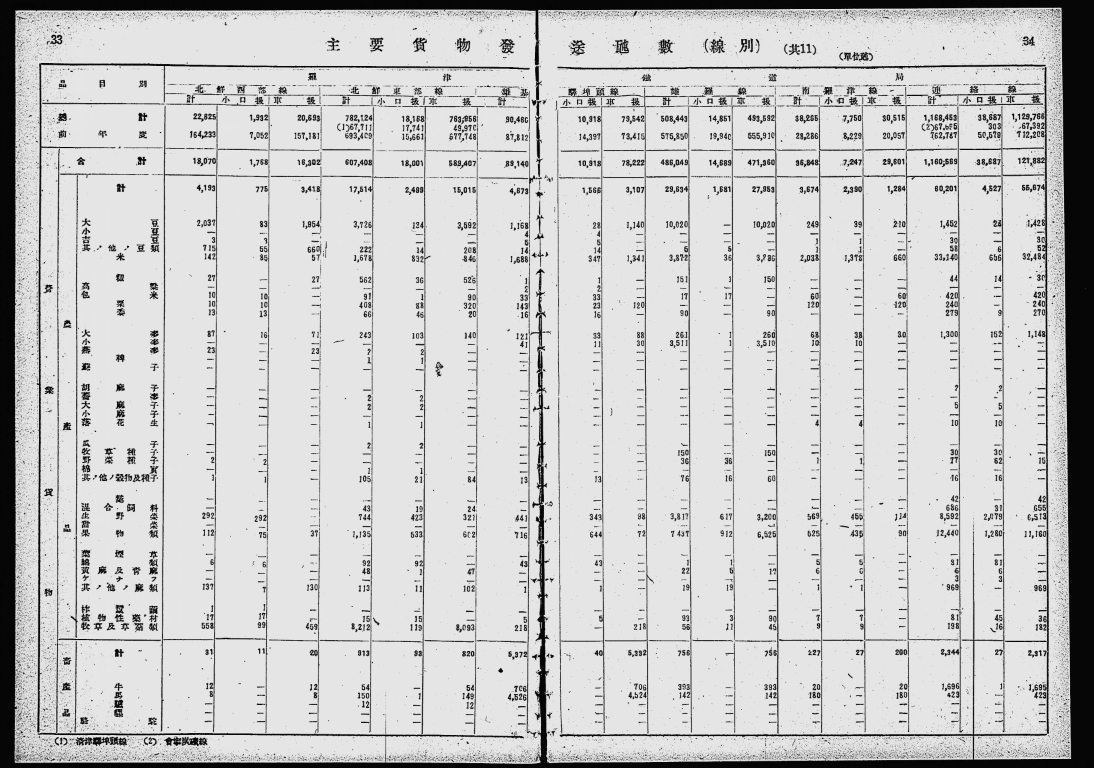 33
主要貨物發送噸數(線別) (共11)
34
(單位瓲)
品目別 羅津鐵道局
北鮮西部線 北鮮東部線 雄基驛埠頭線 雄羅線 南羅津線 連絡線
計 小口扱 車扱 計 小口扱 車扱 計 小口扱 車扱 計 小口扱 車扱 計 小口扱 車扱 計 小口扱 車扱
總計 22,625 1,932 20,693 782,124 18,188 763,956 90,460 10,918 79,542 508,443 14,851 493,592 38,265 7,750 30,515 1,168,453 38,687 1,129,766
(1)67,711 17,741 49,970 (2)67,695 303 67,392
前年度 164,233 7,052 157,181 693,409 15,661 677,748 87,812 14,397 73,415 575,850 19,940 555,910 28,286 8,229 20,057 762,787 50,579 712,208
合計 18,070 1,768 16,302 607,408 18,001 589,407 89,140 10,918 78,222 486,049 14,689 471,360 36,848 7,247 29,601 1,160,569 38,687 121,882
計 4,193 775 3,418 17,514 2,489 15,015 4,673 1,566 3,107 29,634 1,681 27,953 3,674 2,390 1,284 60,201 4,527 55,674
大豆 2,037 83 1,954 3,726 134 3,592 1,168 28 1,140 10,020 — 10,020 249 39 210 1,452 24 1,428
小豆 — — — — — — 4 4 — — — — — — — — — —
吉豆 3 3 — — — — 5 5 — — — — 1 1 — 30 — 30
其ノ他ノ豆類 715 55 660 222 14 208 14 14 — 5 5 — 1 1 — 58 6 52
米 142 85 57 1,678 832 846 1,688 347 1,341 3,872 36 3,836 2,038 1,378 660 33,140 656 32,484
籾 27 — 27 562 36 526 1 1 — 151 1 150 — — — 44 14 30
高粱 — — — — — — 2 2 — — — — — — — — — —
包米 10 10 — 91 1 90 33 33 — 17 17 — 60 — 60 420 — 420
粟 10 10 — 408 88 320 143 23 120 — — — 120 — 120 240 — 240
黍 13 13 — 66 46 20 16 16 — 90 — 90 — — — 279 9 270
大麥 87 16 71 243 103 140 121 33 88 261 1 260 68 38 30 1,300 152 1,148
小麥 — — — — — — 41 11 30 3,511 1 3,510 10 10 — — — —
燕麥 23 — 23 2 2 — — — — — — — — — — — — —
稗 — — — 1 1 — — — — — — — — — — — — —
蘇子 — — — — — — — — — — — — — — — — — —
胡麻子 — — — — — — — — — — — — — — — 2 2 —
蕎麥 — — — 2 2 — — — — — — — — — — — — —
大麻子 — — — 2 2 — — — — — — — — — — 5 5 —
小麻子 — — — — — — — — — — — — — — — — — —
落花生 — — — 1 1 — — — — — — — 4 4 — 10 10 —
瓜子 — — — 2 2 — — — — — — — — — — — — —
牧草種子 — — — — — — — — — 150 — 150 — — — 30 30 —
野菜種子 2 2 — — — — — — — 36 36 — 1 1 — 77 62 15
棉實 — — — 1 1 — — — — — — — — — — — — —
其ノ他ノ穀物及種子 1 1 — 105 21 84 13 13 — 76 16 60 — — — 16 16 —
— — — — — — — — — — — — — — — 42 — 42
混合飼料 — — — 43 19 24 — — — — — — — — — 686 31 655
生野菜 292 292 — 744 423 321 441 343 98 3,817 617 3,200 569 455 114 8,592 2,079 6,513
果物類 112 75 37 1,135 533 602 716 644 72 7,437 912 6,525 525 435 90 12,440 1,280 11,160
葉煙草 — — — — — — — — — — — — — — — — — —
綿類 6 6 — 92 92 — 43 43 — 1 1 — 5 5 — 81 81 —
黃麻及青麻 — — — 48 1 47 — — — 22 5 17 6 6 — 6 6 —
ケナフ — — — — — — — — — — — — — — — 3 3 —
其ノ他ノ麻類 137 7 130 113 11 102 1 1 — 19 19 — 1 1 — 969 — 969
柞蠶繭 1 1 — — — — — — — — — — — — — — — —
植物性藥材 17 17 — 15 15 — 5 5 — 93 3 90 7 7 — 81 45 36
牧草及草藁類 558 99 459 8,212 119 8,093 218 — 218 56 11 45 9 9 — 198 16 182
計 31 11 20 913 93 820 5,372 40 5,332 756 — 756 227 27 200 2,344 27 2,317
牛 12 — 12 54 — 54 706 — 706 393 — 393 20 — 20 1,696 1 1,695
馬 8 — 8 150 1 149 4,526 — 4,524 142 — 142 180 — 180 423 — 423
驢 — — — 12 — 12 — — — — — — — — — — — —
騾 — — — — — — — — — — — — — — — — — —
駱駝 — — — — — — — — — — — — — — — — — —
營業貨物
農產品
畜產品
(1) 清津驛埠頭線 (2) 會寧炭礦線